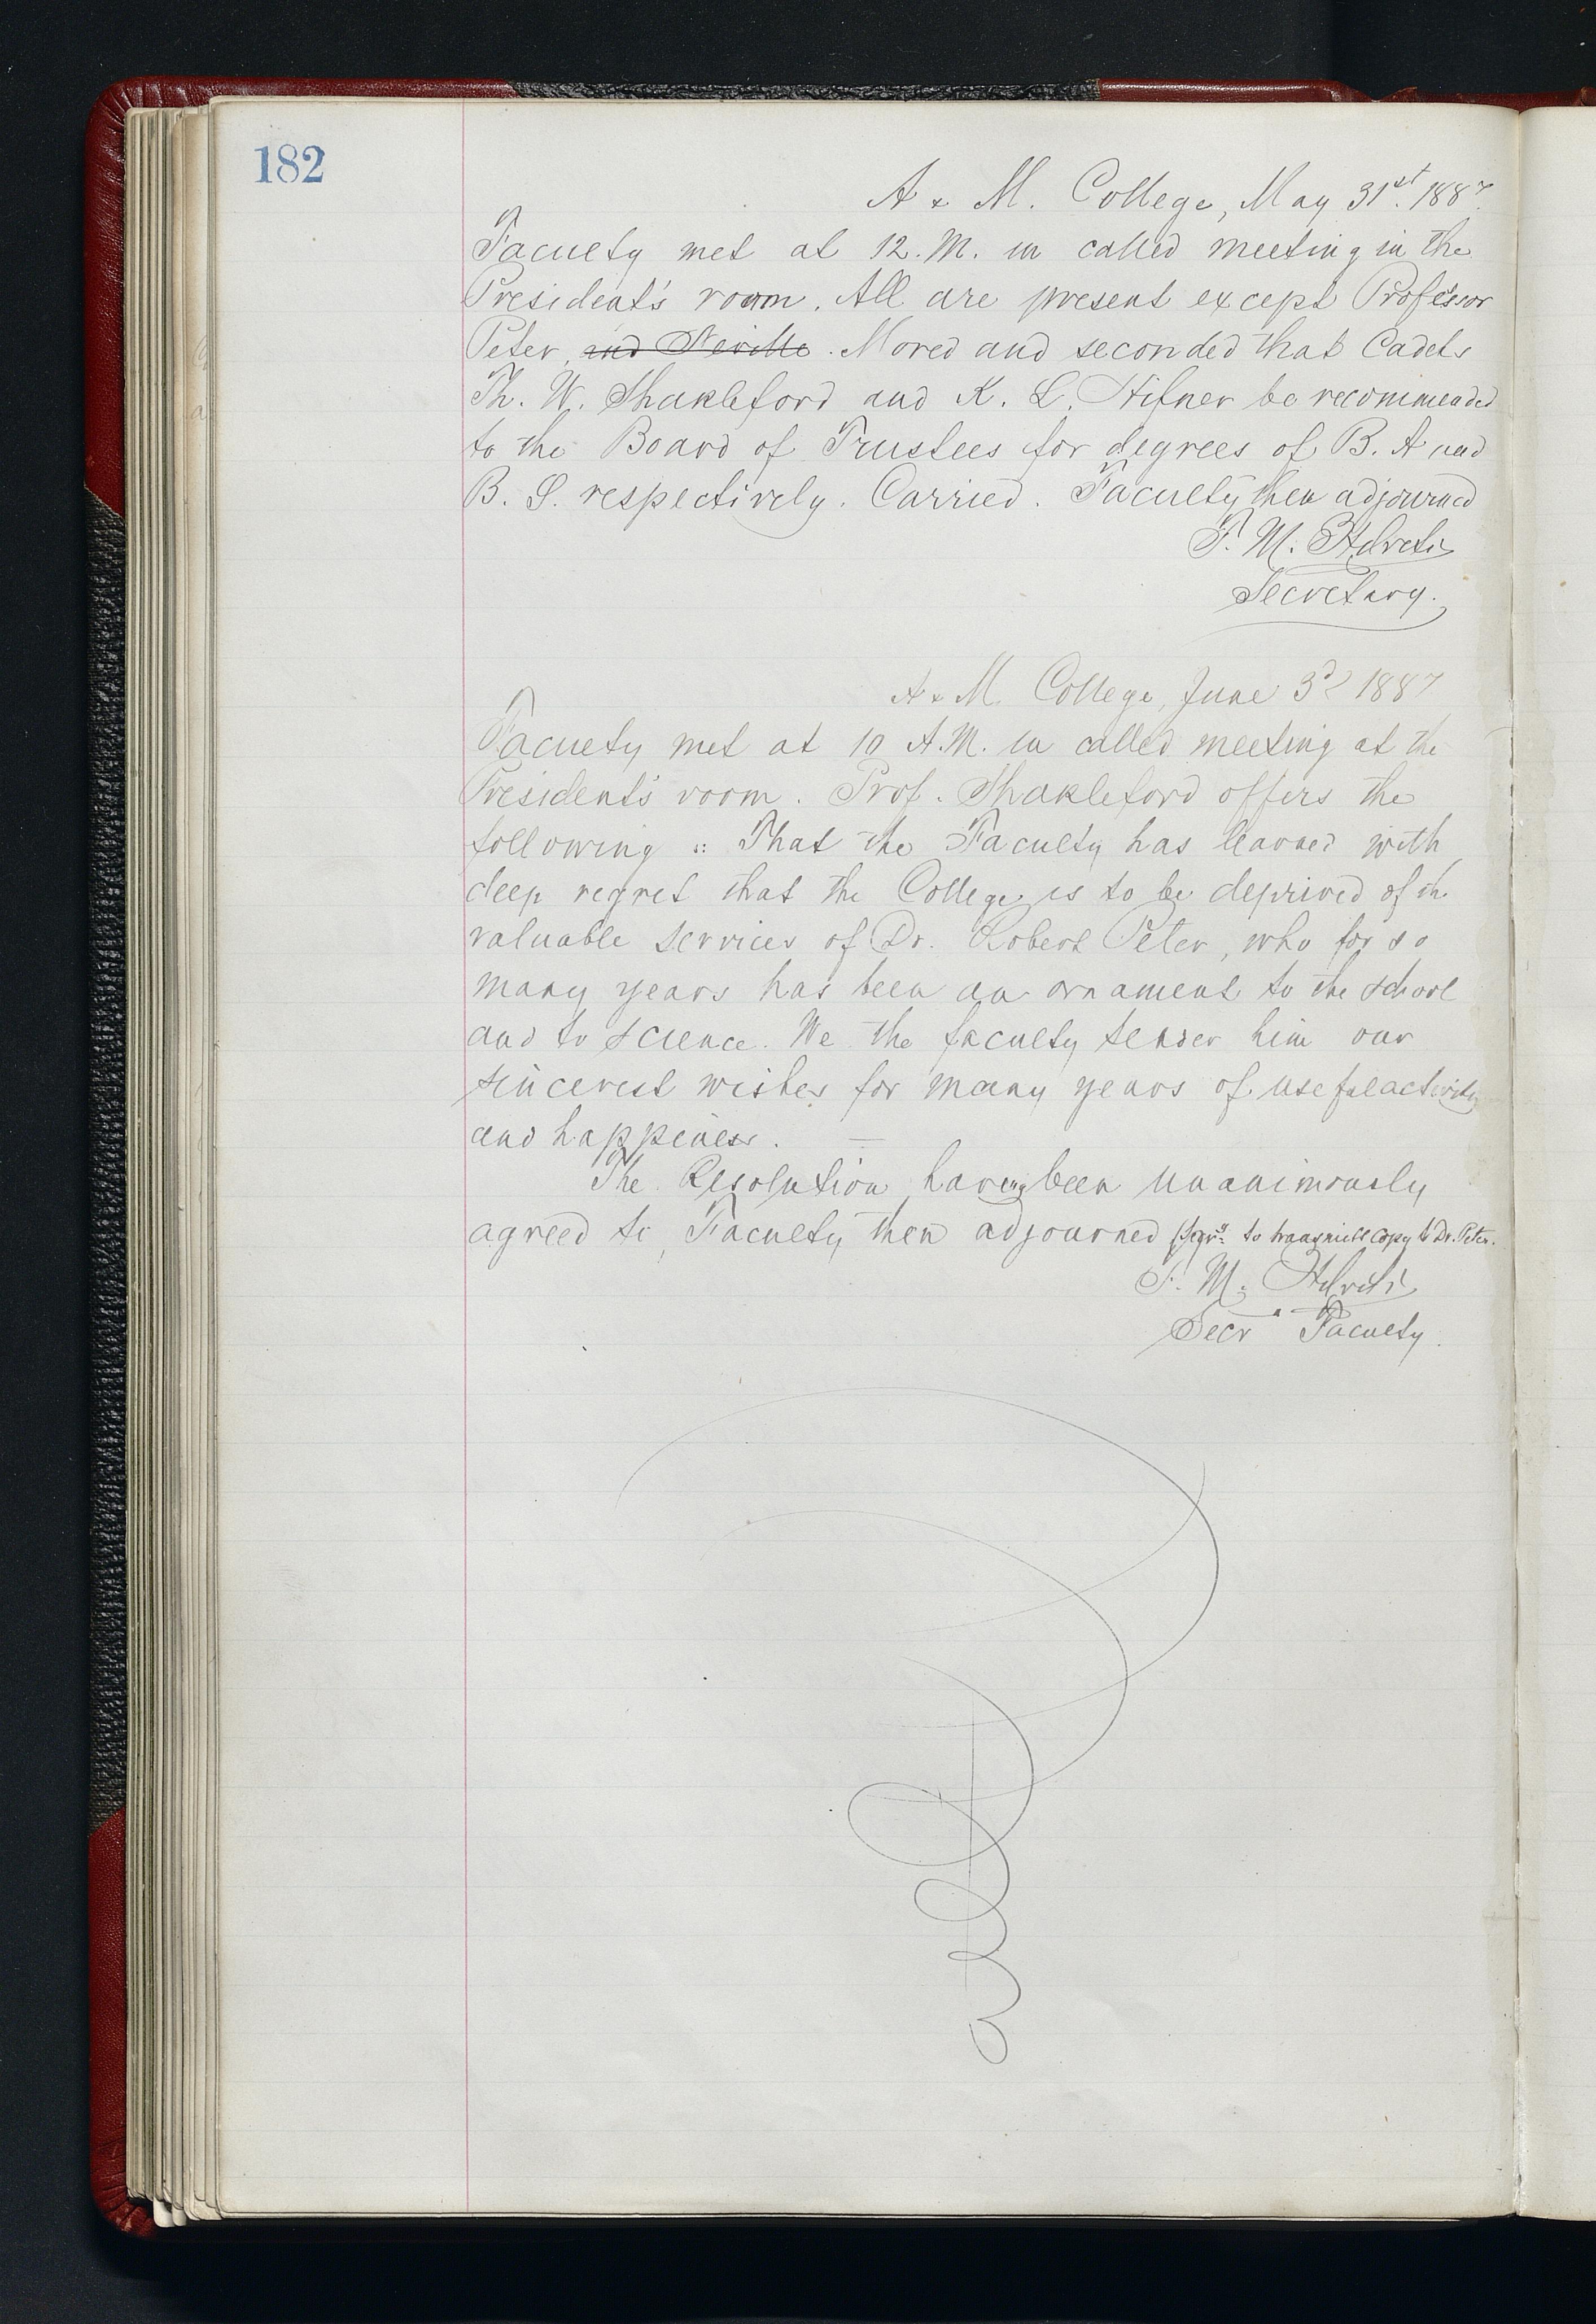 182
A & M. College, May 31st. 1887.
Faculty met at 12. M. in called meeting in the
President's room. All are present except Professor
Peter, and Neville. Moved and seconded that Cadets
Th. W. Shakleford and K. L. Hifner be recommended
to the Board of Trustees for degrees of B. A and
B. S. respectively. Carried. Faculty then adjourned
F. M. Helveti
Secretary.
A & M. College, June 3d 1887
Faculty met at 10 A.M. in called meeting at the
President's room. Prof. Shakleford offers the
following :: That the Faculty has learned with
deep regret that the College is to be deprived of th
valuable services of Dr. Robert Peter, who for so
many years has been an ornament to the school
and to science. We the faculty tender him our
sincerest wishes for many years of useful activity
and happiness. —
The Resolution having been unanimously
agreed to, Faculty then adjourned to transmitt copy to Dr. Peter.
F. M. Helveti
Secr Faculty.